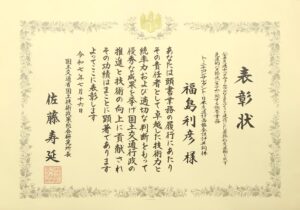 表彰状
福島利彦 様
あなたは頭書業務の履行にあたり
その責任者として卓越した技術力と
統率力および適切な判断をもって
優秀な成果を挙げ国土交通行政の
推進と技術の向上に貢献され
その功績はまことに顕著であります
よってここに表彰します
令和七年七月十六日
国土交通省国土技術政策総合研究所長
佐藤寿延